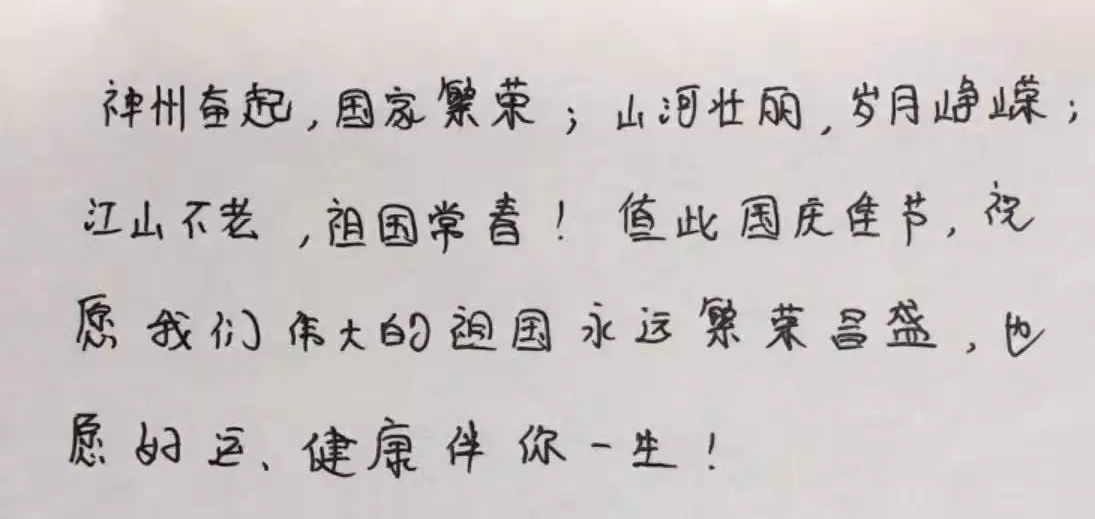 神州奋起,国家繁荣;山河壮丽,岁月峥嵘;
江山不老,祖国常春!值此国庆佳节,祝
愿我们伟大的祖国永远繁荣昌盛,也
愿好运、健康伴你一生!